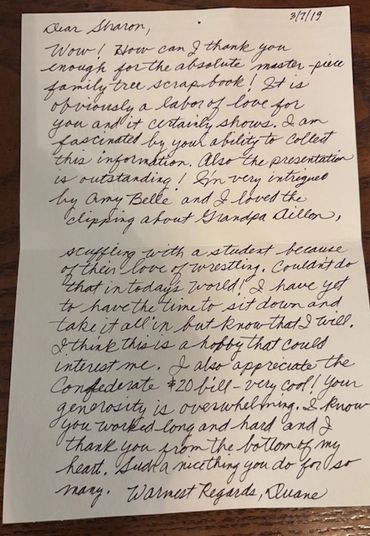 3/7/19
Dear Sharon,
Wow! How can I thank you
enough for the absolute master-piece
family tree scrapbook! It is
obviously a labor of love for
you and it certainly shows. I am
fascinated by your ability to collect
this information. Also the presentation
is outstanding! I'm very intrigued
by Amy Belle and I loved the
clipping about Grandpa Dillon,
scuffling with a student because
of their love of wrestling. Couldn't do
that in todays world! I have yet
to have the time to sit down and
take it all in but know that I will.
I think this is a hobby that could
interest me. I also appreciate the
Confederate $20 bill - very cool! Your
generosity is overwhelming. I know
you worked long and hard and I
thank you from the bottom of my
heart. Such a nice thing you do for so
many. Warmest Regards, Duane